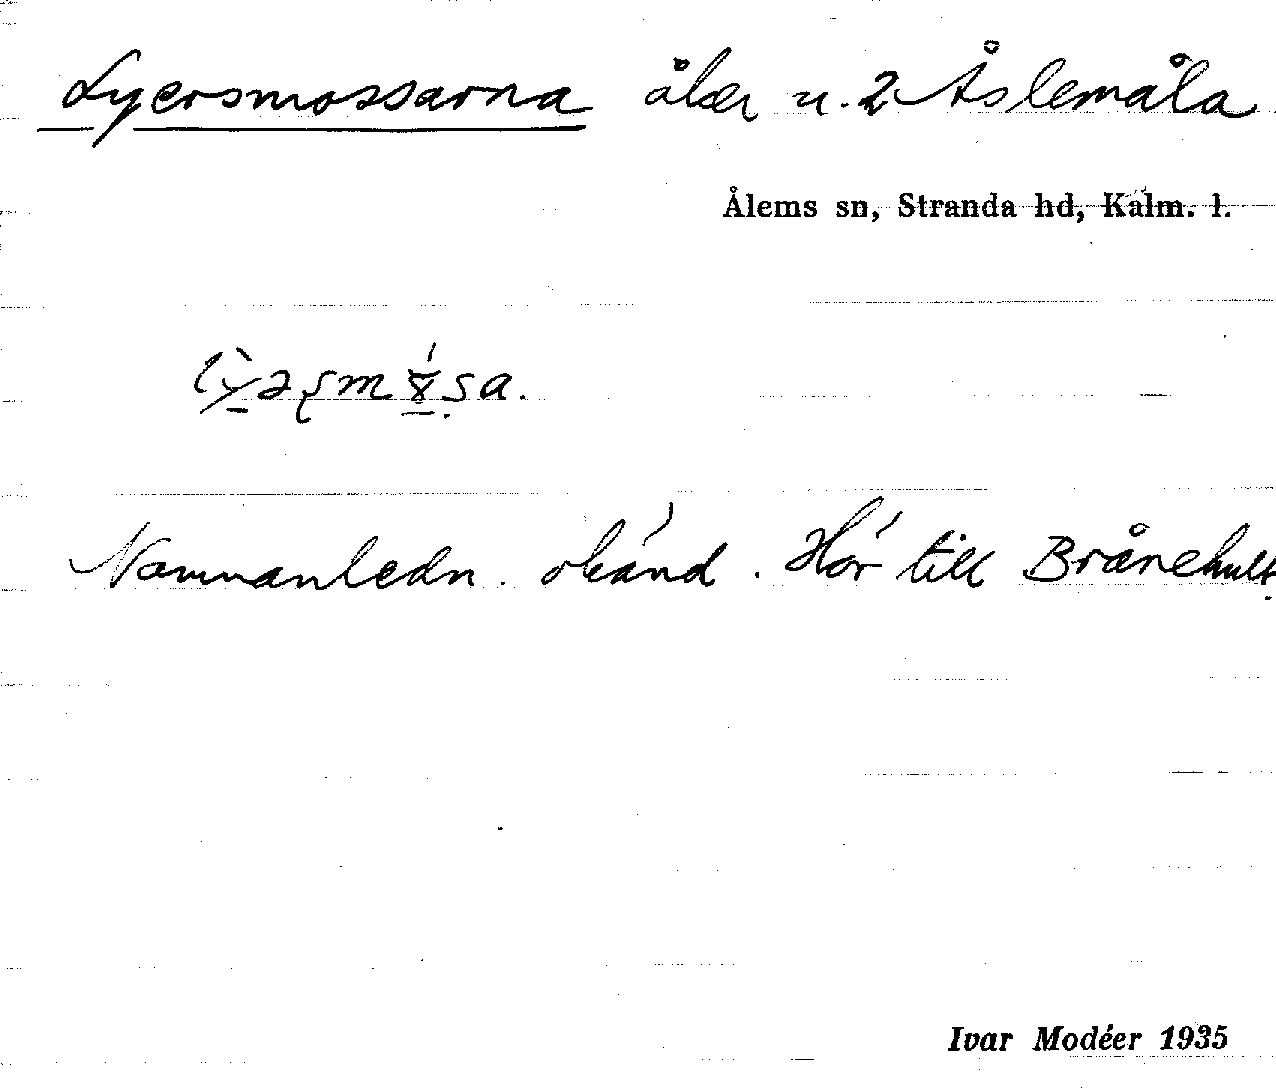 Lyersmossarna åker u. 2 Åslemåla
Ålems sn, Stranda hd, Kalm. l.
Namnanledn. okänd. Hör till Brånehult.
Ivar Modéer 1935